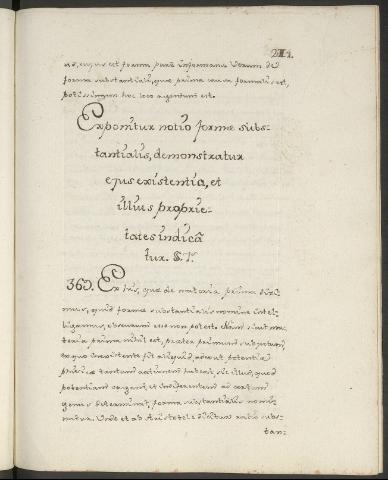 211.
us, cujus est forma pars informans. Verum de
forma substantiali, quæ prima causa formalis est,
potissimum hoc loco agendum est.
Exponitur notio formæ subs-
tantialis, demonstratur
ejus existentia, et
illius proprie-
tates indicā
tur. §. 1.
360. Ex his, quæ de materia prima dixi-
mus, quid formæ substantialis nomine intel-
ligamus, obscurum esse non potest. Nam sicut ma-
teria prima nihil est, præter primum subjectum,
ex quo inexistente fit aliquid, adeout potentiæ
physicæ tantum rationem habeat, sic illud, quod
potentiam, et indifferentem ad certum
genus determinat, forma substantialis nomi-
natur. Unde et ab Aristotele dicitur ratio subs-
tan-